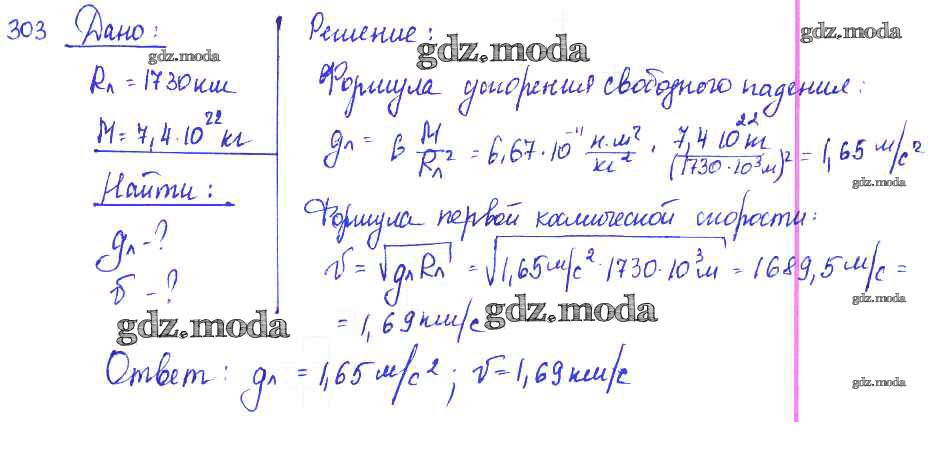 303 Дано:
Rл = 1730 км
M = 7,4·10²² кг
Найти:
gл - ?
v - ?
Решение:
gdz.moda
gdz.moda
Формула ускорения свободного падения:
gл = G M/Rл² = 6,67·10⁻¹¹ н·м²/кг² · 7,4 10²² кг/(1730·10³ м)² = 1,65 м/с²
gdz.moda
Формула первой космической скорости:
v = √gлRл = √1,65 м/с² · 1730·10³ м = 1689,5 м/с =
= 1,69 км/с
gdz.moda
gdz.moda
gdz.moda
gdz.moda
Ответ: gл = 1,65 м/с²; v = 1,69 км/с
gdz.moda